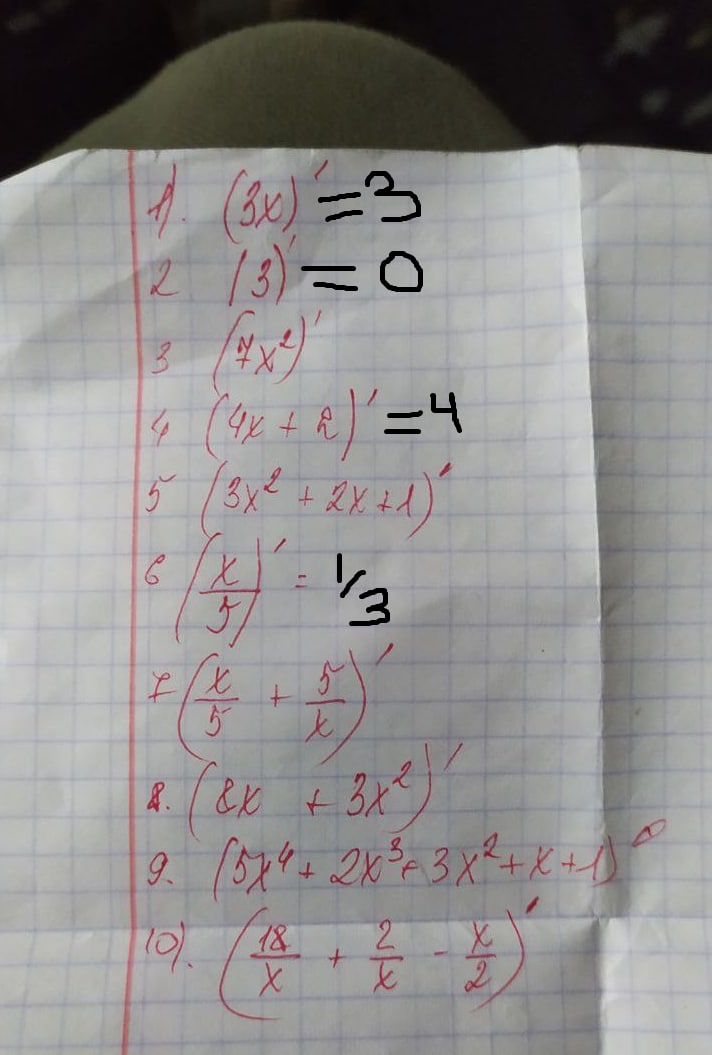 1). (3x)' = 3
2 (3)' = 0
3 (7x²)'
4 (4x + 2)' = 4
5 (3x² + 2x + 1)'
6 (x/5)' = 1/3
7 (x/5 + 5/x)'
8. (8x + 3x²)'
9. (5x⁴ + 2x³ + 3x² + x + 1)'
10). (18/x + 2/x - x/2)'